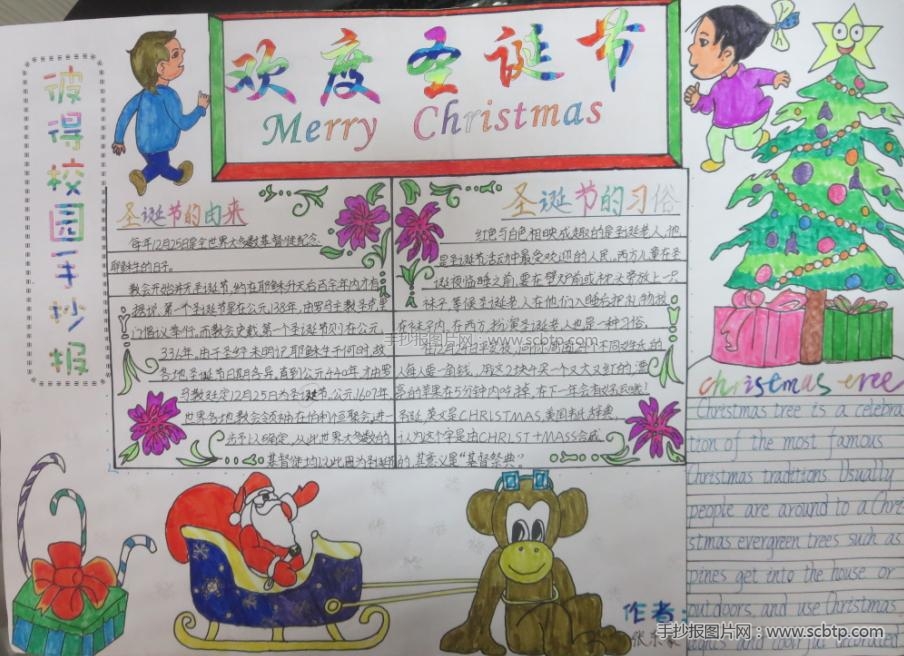 彼得校园手抄报
欢度圣诞节
Merry Christmas
圣诞节的由来
每年12月25日是全世界大多数基督徒纪念
耶稣生的日子。
教会开始并无圣诞节,约在耶稣升天后百余年内才有
据说:第一个圣诞节是在公元138年,由罗马主教圣克里
门倡议举行,而教会史载第一个圣诞节则在公元
336年,由于圣经未明记耶稣生于何时,故
各地圣诞节日期各异,直到公元440年,才由罗
马教廷定12月25日为圣诞节。公元1607年,
世界各地教会领袖在伯利恒聚会,进一
步予以确定,从此世界大多数的
基督徒均以此圣诞
圣诞节的习俗
红色与白色相映成趣的是圣诞老人,他
是圣诞节活动中最受欢迎的人民,西方儿童在圣
诞夜临睡之前,要在壁炉前或枕头旁放上一只
袜子,等候圣诞老人在他们入睡后把礼物放
在袜子内,在西方,扮演圣诞老人也是一种习俗。
在12月24日平安夜,向你周围24个不同姓氏的
人每人要一角钱,用这2块4去买一个又大又红的漂
亮的苹果在5分钟内吃掉,在下一年会有好
圣诞,英文是CHRISTMAS,美国韦氏辞典,
认为这个字是由CHRIST+MASS合成
的,其意义是“基督祭典”。
christmas tree
Christmas tree is a celebra
tion of the most famous
Christmas traditions. Usually
people are around to a Chri
stmas evergreen trees such as
pines get into the house or
outdoors, and use Christmas
lights and colorful decorated
作者:
张东
手抄报图片网:www.scbtp.com
手抄报图片网:www.scbtp.com